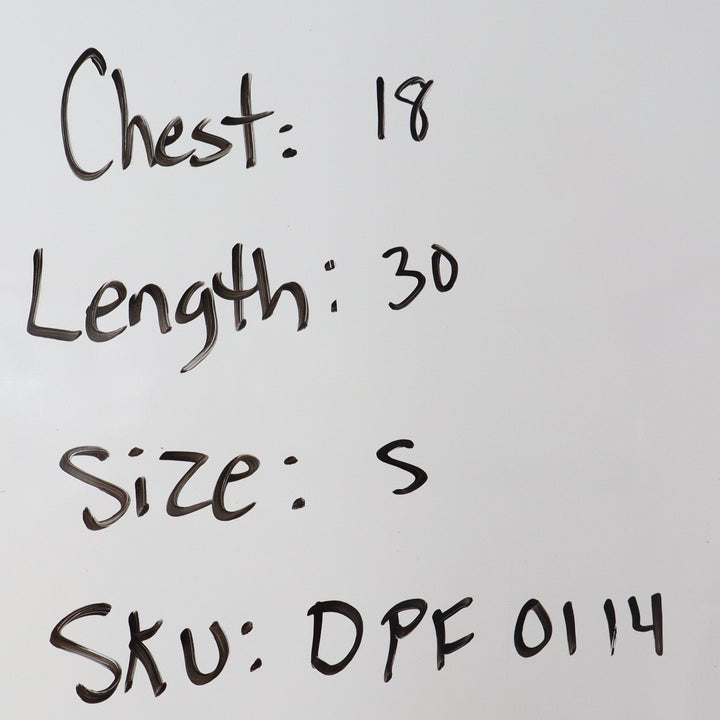 Chest: 18
Length: 30
Size: S
SKU: DPF 0114